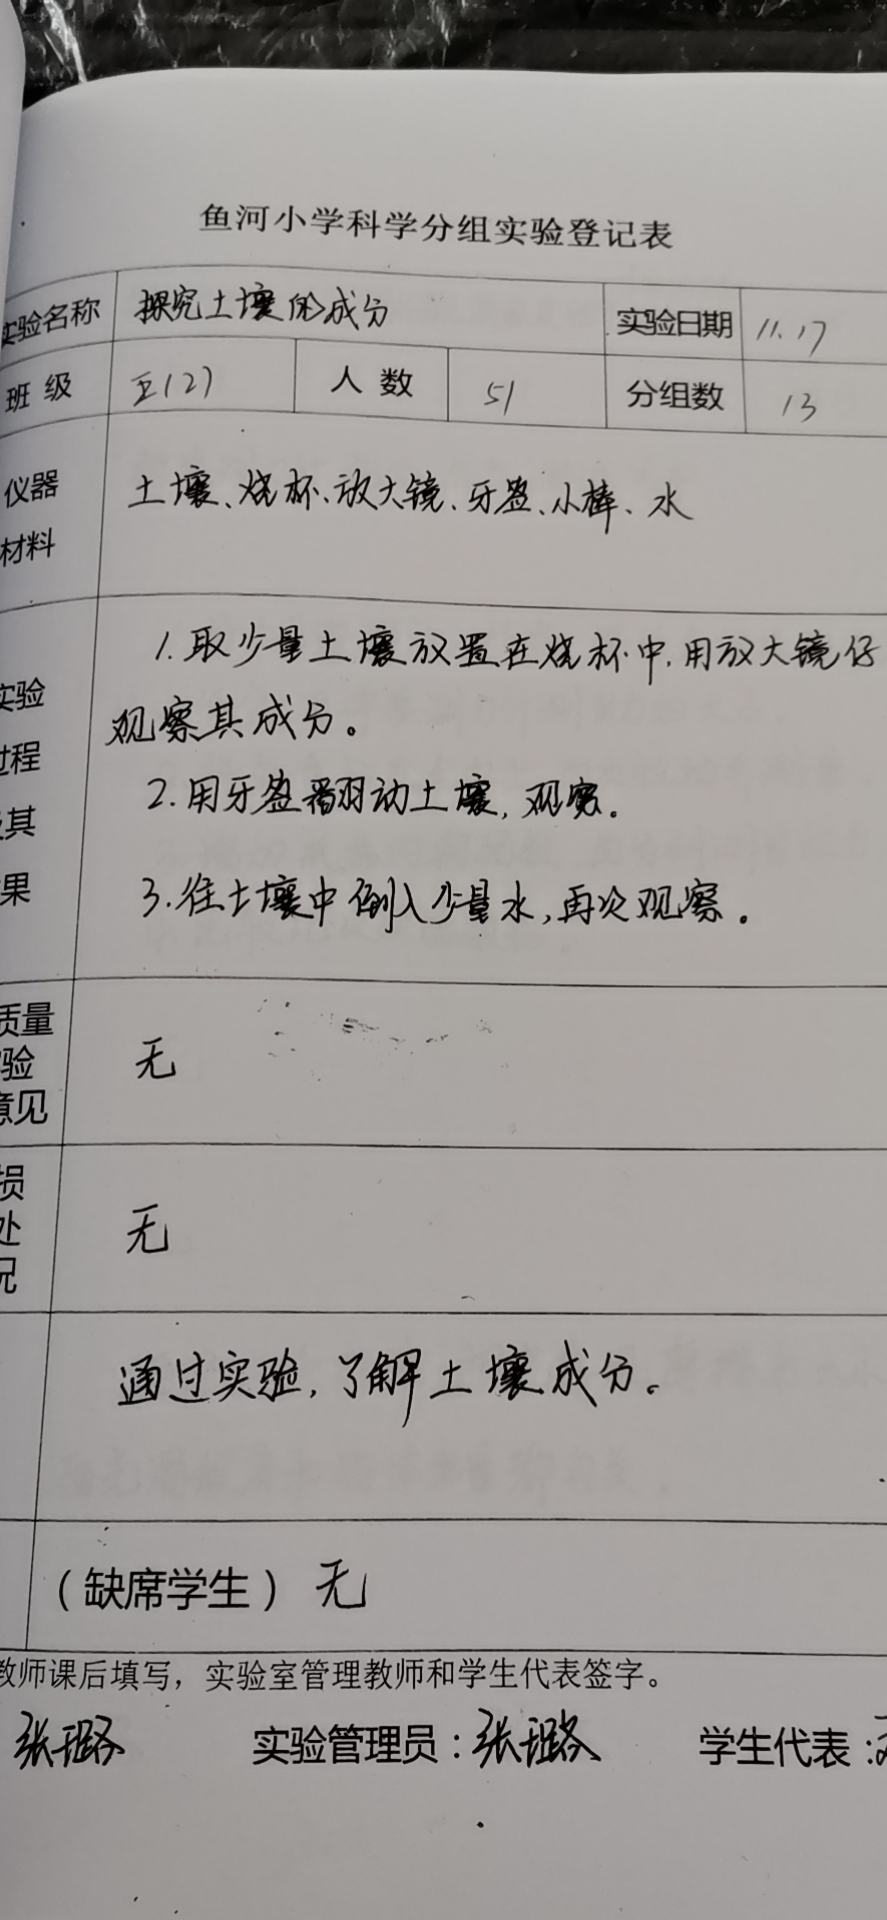 鱼河小学科学分组实验登记表
实验名称 探究土壤的成分 实验日期 11.17
班级 五(2) 人数 51 分组数 13
仪器 土壤、烧杯、放大镜、牙签、小棒、水
材料
1.取少量土壤放置在烧杯中,用放大镜仔
实验
观察其成分。
过程
2.用牙签翻动土壤,观察。
及其
果 3.往土壤中倒入少量水,再次观察。
质量
验 无
意见
损
处 无
况
通过实验,了解土壤成分。
(缺席学生) 无
教师课后填写,实验室管理教师和学生代表签字。
张璐 实验管理员:张璐 学生代表: